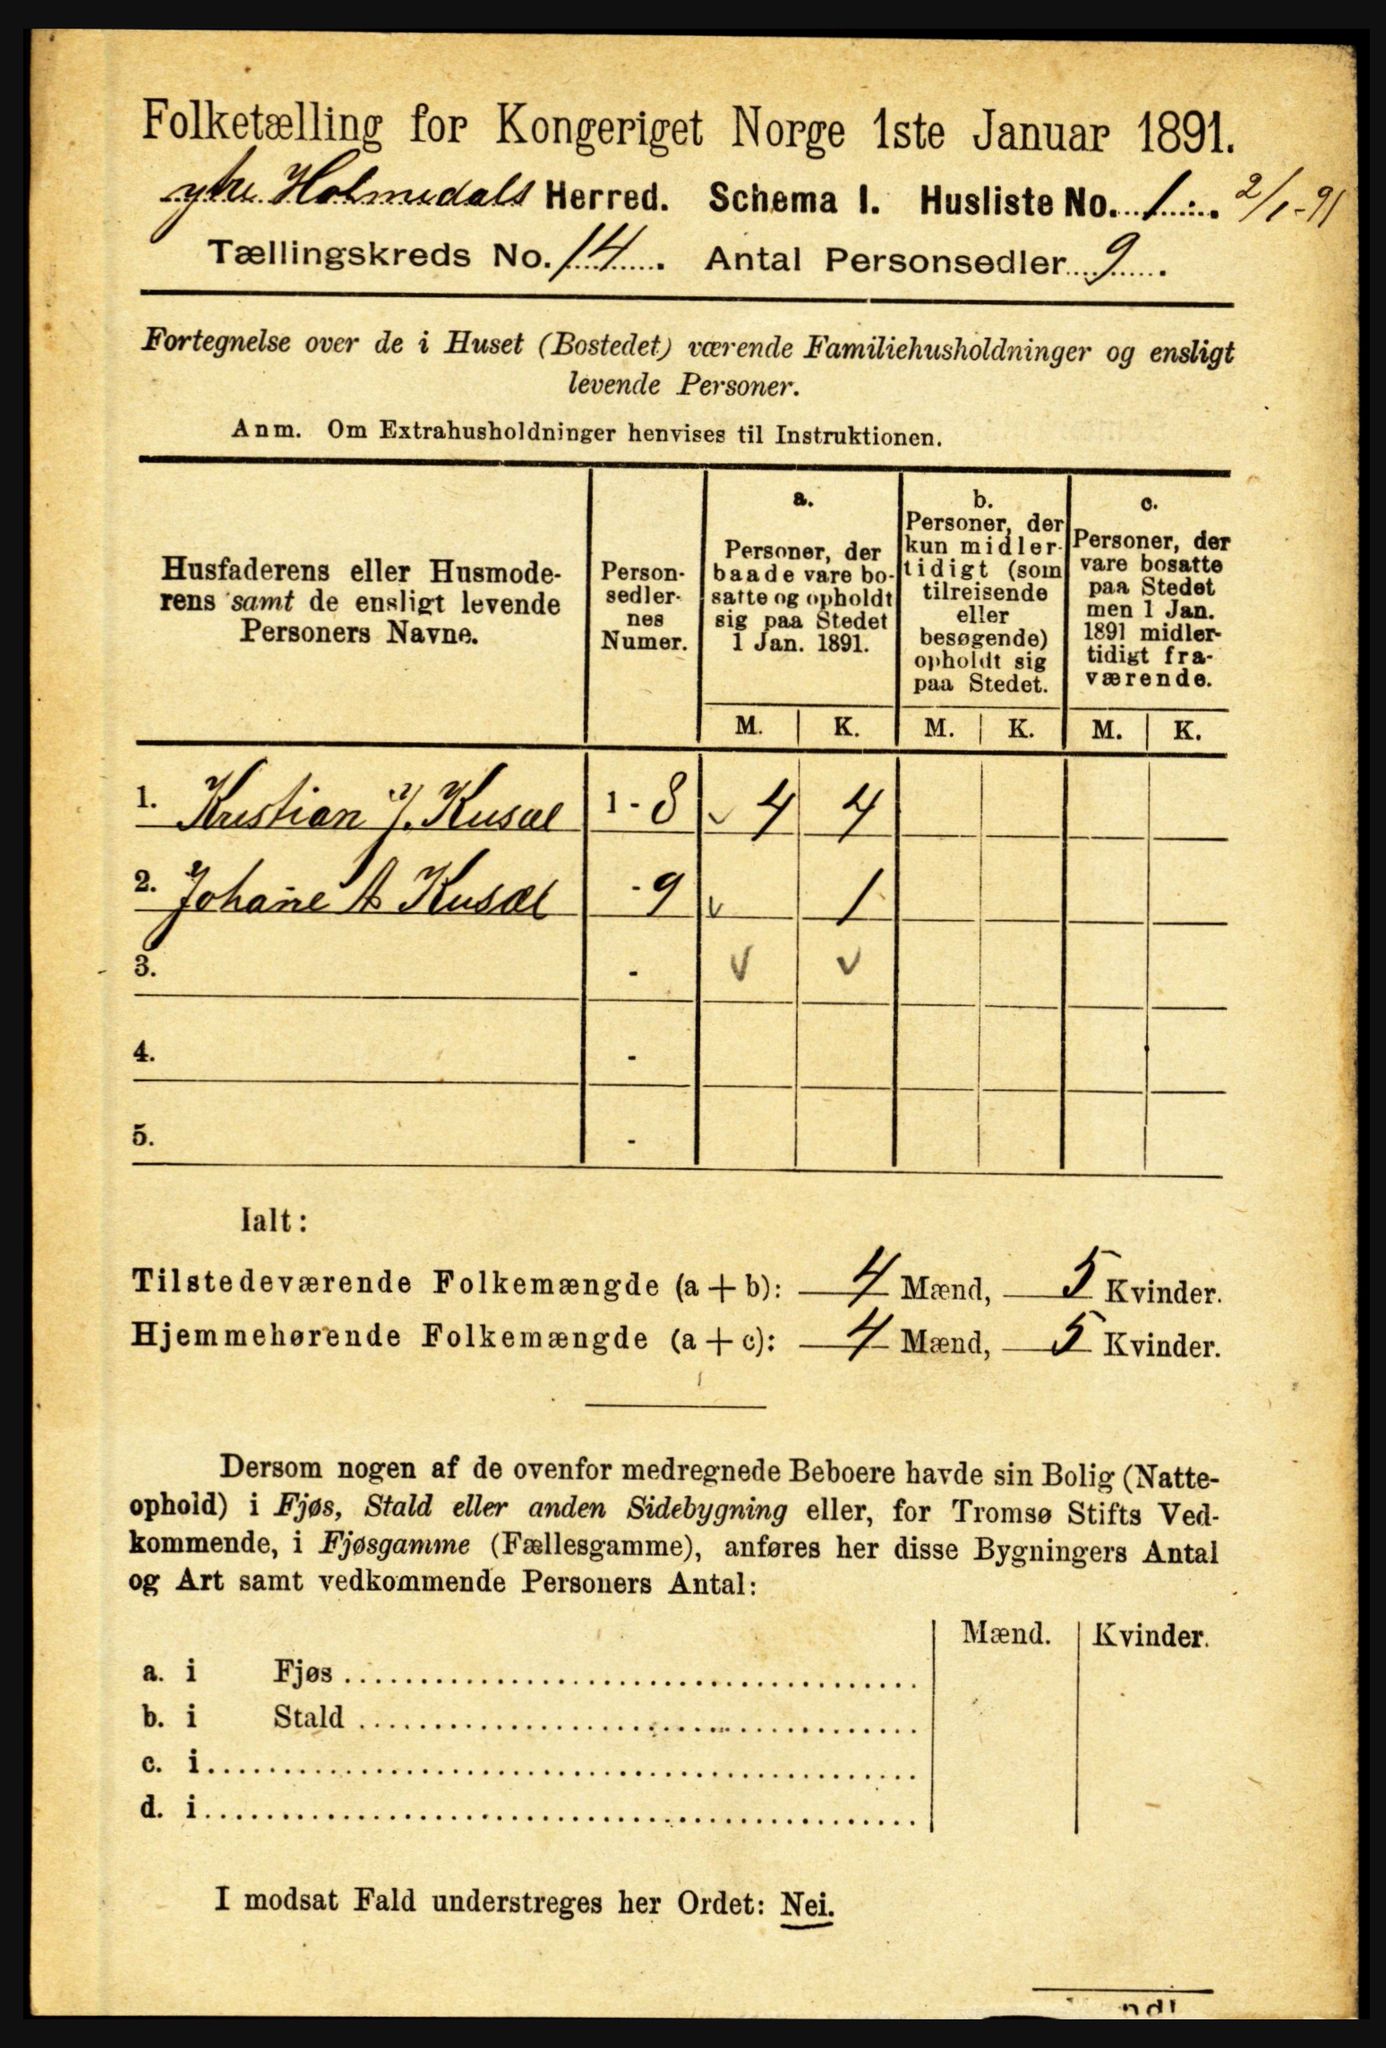 Folketælling for Kongeriget Norge 1ste Januar 1891.
ytre Holmedals Herred. Schema I. Husliste No. 1. 2/1-91
Tællingskreds No. 14. Antal Personsedler 9.
Fortegnelse over de i Huset (Bostedet) værende Familiehusholdninger og ensligt
levende Personer.
Anm. Om Extrahusholdninger henvises til Instruktionen.
Husfaderens eller Husmode-
rens samt de ensligt levende
Personers Navne.
Person-
sedler-
nes
Numer.
a.
Personer, der
baade vare bo-
satte og opholdt
sig paa Stedet
1 Jan. 1891.
b.
Personer, der
kun midler-
tidigt (som
tilreisende
eller
besøgende)
opholdt sig
paa Stedet.
c.
Personer, der
vare bosatte
paa Stedet
men 1 Jan.
1891 midler-
tidigt fra-
værende.
M. K. M. K. M. K.
1. Kristian J. Kusæl 1 - 8 4 4
2. Johane A Kusæl - 9 1
3. -
4. -
5. -
Ialt:
Tilstedeværende Folkemængde (a + b): 4 Mænd, 5 Kvinder.
Hjemmehørende Folkemængde (a + c): 4 Mænd, 5 Kvinder.
Dersom nogen af de ovenfor medregnede Beboere havde sin Bolig (Natte-
ophold) i Fjøs, Stald eller anden Sidebygning eller, for Tromsø Stifts Ved-
kommende, i Fjøsgamme (Fællesgamme), anføres her disse Bygningers Antal
og Art samt vedkommende Personers Antal:
Mænd. Kvinder.
a. i Fjøs
b. i Stald
c. i
d. i
I modsat Fald understreges her Ordet: Nei.